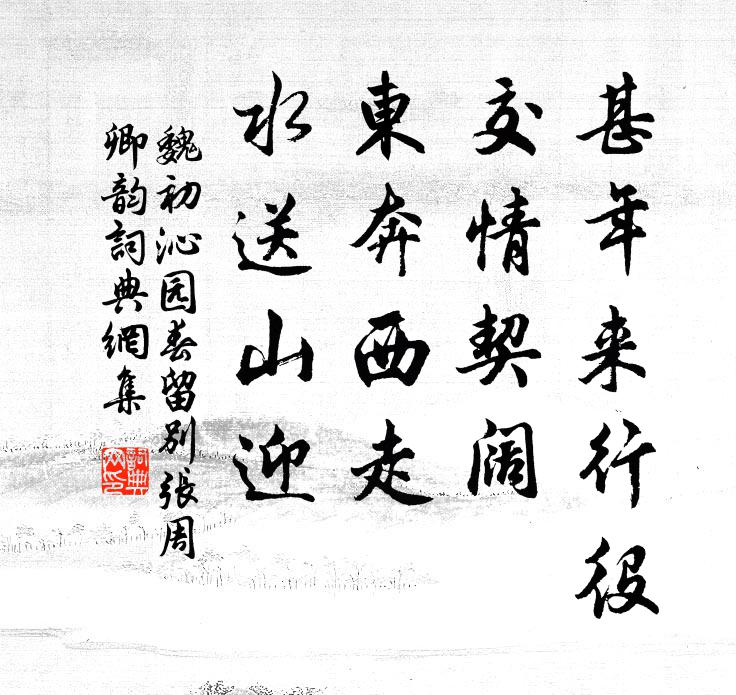 甚年来行役
交情契阔
東奔西走
水送山迎
魏初沁园春留别張周
卿韵詞典網集